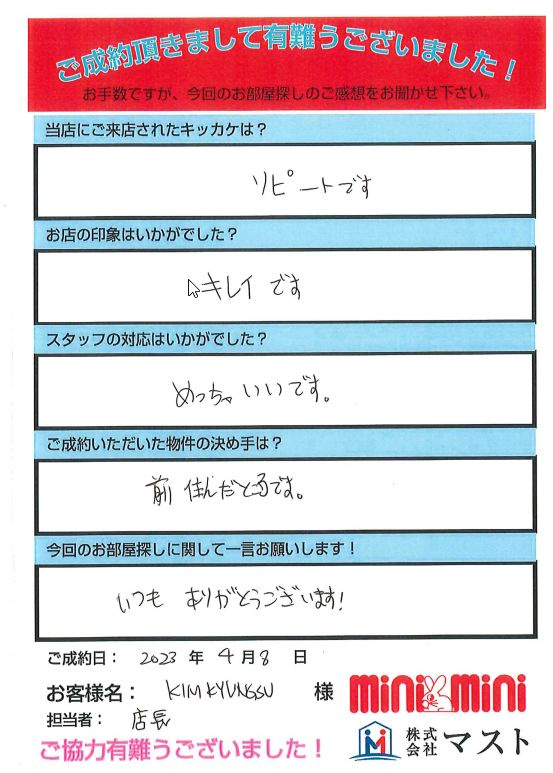 ご成約頂きまして有難うございました！
お手数ですが、今回のお部屋探しのご感想をお聞かせ下さい。
当店にご来店されたキッカケは？
リピートです
お店の印象はいかがでした？
キレイです
スタッフの対応はいかがでした？
めっちゃいいです。
ご成約いただいた物件の決め手は？
前住んだところです。
今回のお部屋探しに関して一言お願いします！
いつも ありがとうございます!
ご成約日： 2023 年 4 月 8 日
お客様名： KIM KYUNGSU 様
mini mini
担当者： 店長
株式会社 マスト
ご協力有難うございました！